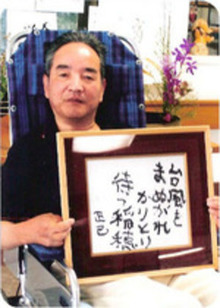 台風も
まぬがれ
かりとり
待つ稲穂
正己